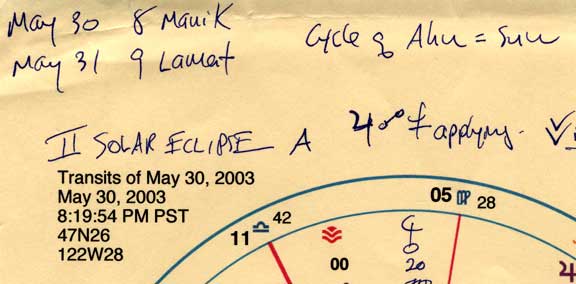 May 30 8 Manik
May 31 9 Lamat
Cycle of Ahu = Sun
♊ SOLAR ECLIPSE A ♃☍ applying.
Transits of May 30, 2003
May 30, 2003
8:19:54 PM PST
47N26
122W28
11 ♎ 42
05 ♍ 28
00
20
♃